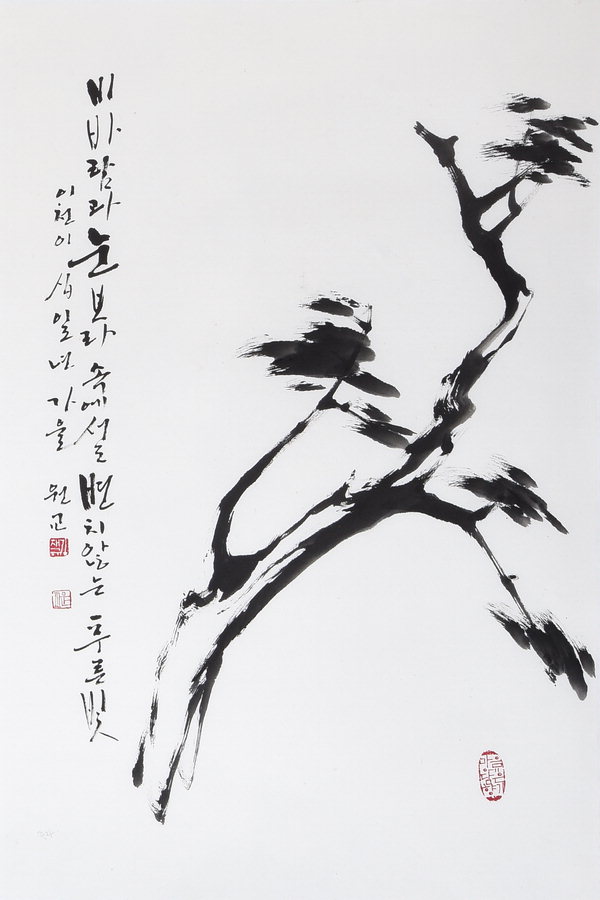 비바람과 눈보라 속에설 변치않는 푸른빛
이천이십일년 가을 원교